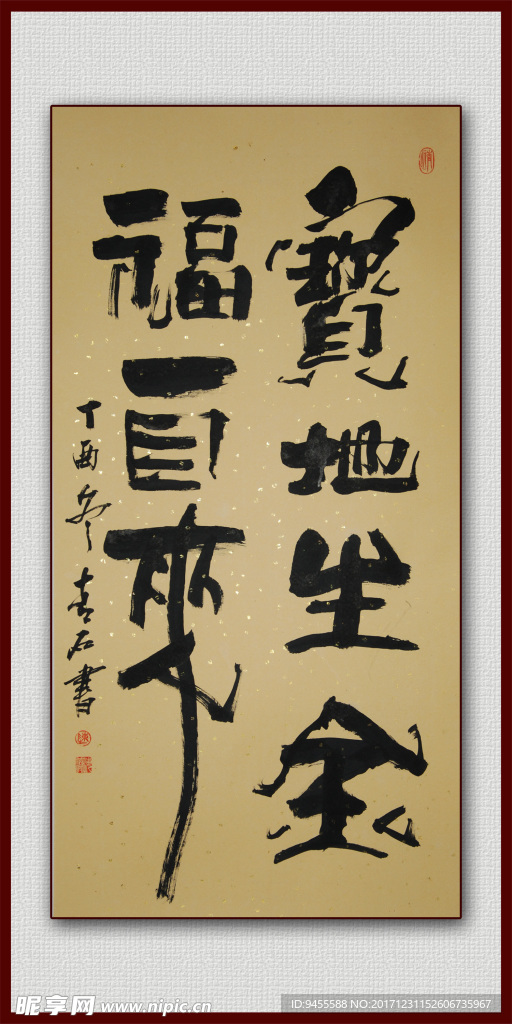 寶地生金
福自來
丁酉冬青石書
昵享网 www.nipic.cn
ID:9455588 NO:20171231152606735967